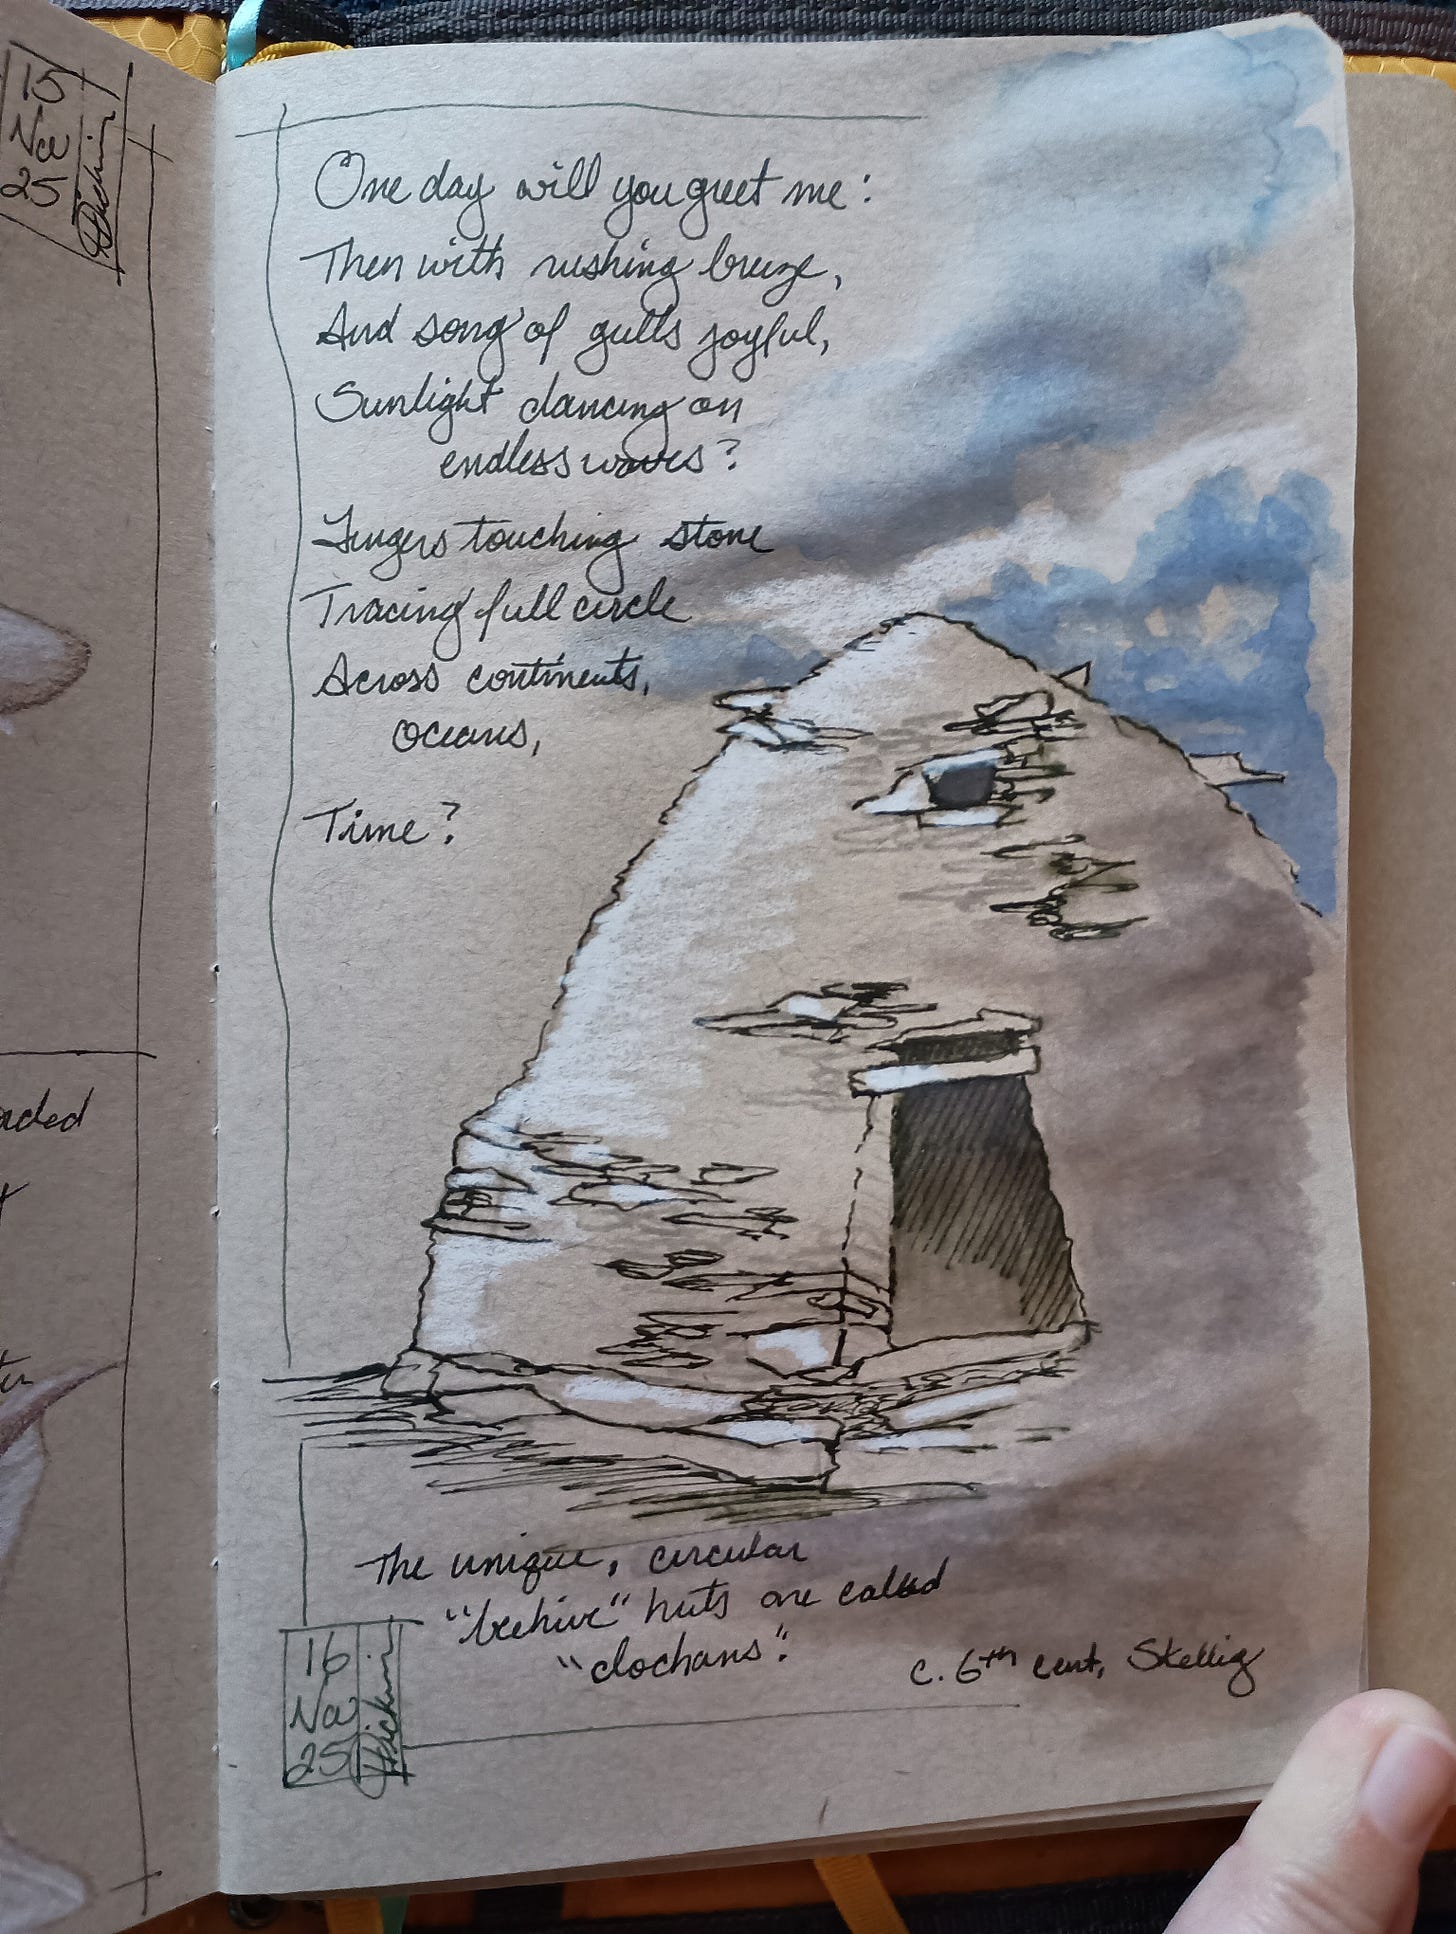 15
Nov
25
Dickin
aded
One day will you greet me:
Then with rushing breeze,
And song of gulls joyful,
Sunlight dancing on
endless waves?
Fingers touching stone
Tracing full circle
Across continents,
oceans,
Time?
The unique, circular
"beehive" huts are called
"clochans".
c. 6th cent, Skellig
16
Nov
25